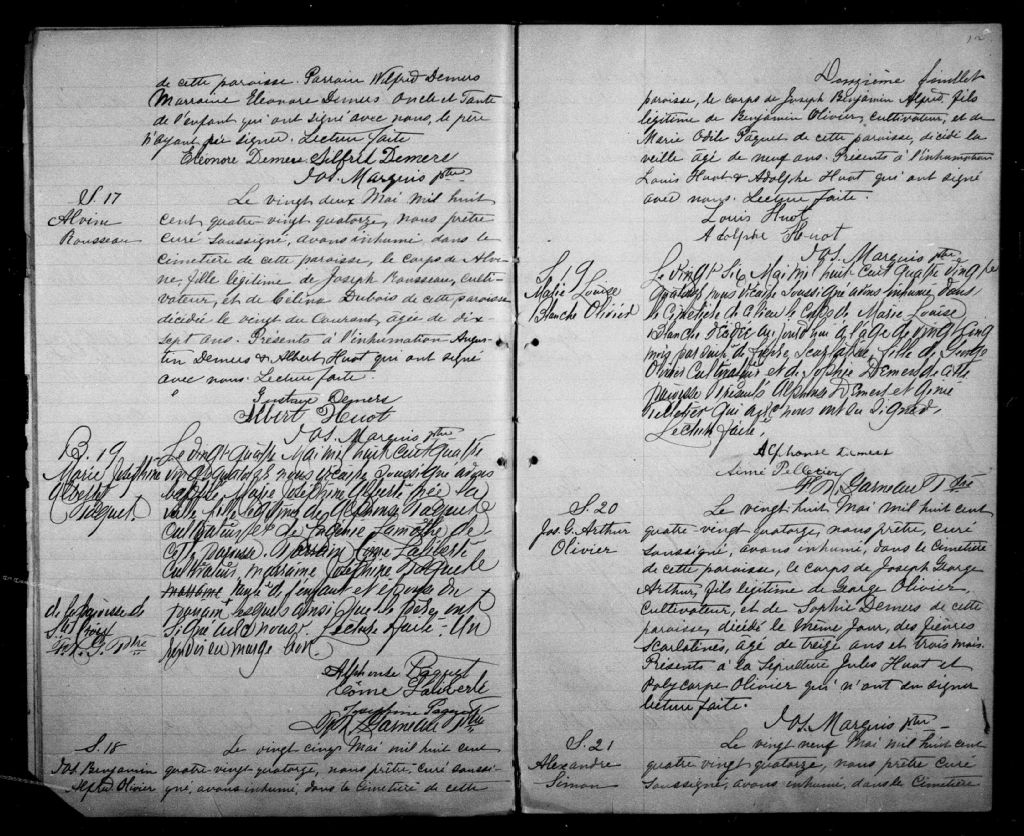 de cette paroisse. Parrain Wilfred Demers
Marraine Eleonore Demers Oncle et Tante
de l'enfant qui ont signé avec nous, le père
n'ayant pu signer. Lecture faite
Eléonore Demers Wilfrid Demers
Jos. Marquis ptre
S. 17
Alvine
Rousseau
Le vingt deux Mai mil huit
cent quatre vingt quatorze, nous prêtre
curé soussigné, avons inhumé dans le
cimetière de cette paroisse, le corps de Alvi-
ne, fille légitime de Joseph Rousseau, culti-
vateur, et de Célina Dubois de cette paroisse
décédée le vingt du courant, agée de dix-
sept ans. Présents à l'inhumation Augus-
tin Demers & Albert Huot qui ont signé
avec nous. Lecture faite.
Gustave Demers
Albert Huot
Jos. Marquis ptre
B. 19
Marie Josephine
Alberta
Paquet.
Le vingt quatre Mai mil huit cent quatre
vingt quatorze nous vicaire soussigné avons
baptisé Marie Josephine Alberta née la
veille fille légitime de Alphonse Paquet
cultivateur et de Lamothe de
cette paroisse. Parrain Come Laliberté
cultivateur, marraine Josephine Paquet le
marraine tante de l'enfant et épouse du
parrain lesquels ainsi que le père ont
signé avec nous. Lecture faite. Un
renvoi en marge bon.
de la paroisse de
Ste Croix
G. Ptre
Alphonse Paquet
Côme Laliberté
Josephine Paquet
Garneau Ptre
S. 18
Jos Benjamin
Alfred Olivier
Le vingt cinq Mai mil huit cent
quatre vingt quatorze, nous prêtre, curé soussi-
gné, avons inhumé, dans le cimetière de cette
12
Douzième feuillet
paroisse, le corps de Joseph Benjamin Alfred, fils
légitime de Benjamin Olivier, cultivateur, et de
Marie Odile Paquet de cette paroisse, décédé la
veille âgé de neuf ans. Présents à l'inhumation
Louis Huot & Adolphe Huot qui ont signé
avec nous. Lecture faite.
Louis Huot
Adolphe Huot
Jos. Marquis ptre
S. 19
Marie Louise
Blanche Olivier
Le vingt six Mai mil huit cent quatre vingt
quatorze nous vicaire soussigné avons inhumé dans
le cimetière de ce lieu le corps de Marie Louise
Blanche décédée aujourd'hui à l'âge de vingt cinq
mois par suite de fièvre scarlatine, fille de George
Olivier cultivateur et de Sophie Demers de cette
paroisse. Présents Alphonse Demers et Aimé
Pelletier qui avec nous ont su signer.
Lecture faite.
Alphonse Demers
Aimé Pelletier
Garneau Ptre
S. 20
Jos. G. Arthur
Olivier
Le vingt-huit Mai mil huit cent
quatre-vingt quatorze, nous prêtre, curé
soussigné, avons inhumé, dans le cimetière
de cette paroisse, le corps de Joseph George
Arthur, fils légitime de George Olivier,
cultivateur, et de Sophie Demers de cette
paroisse, décédé le même jour, des fièvres
scarlatines, âgé de treize ans et trois mois.
Présents à la sépulture Jules Huot et
Polycarpe Olivier qui n'ont su signer
lecture faite.
Jos. Marquis ptre
S. 21
Alexandre
Simon
Le vingt neuf Mai mil huit cent
quatre vingt quatorze, nous prêtre curé
soussigné, avons inhumé, dans le cimetière